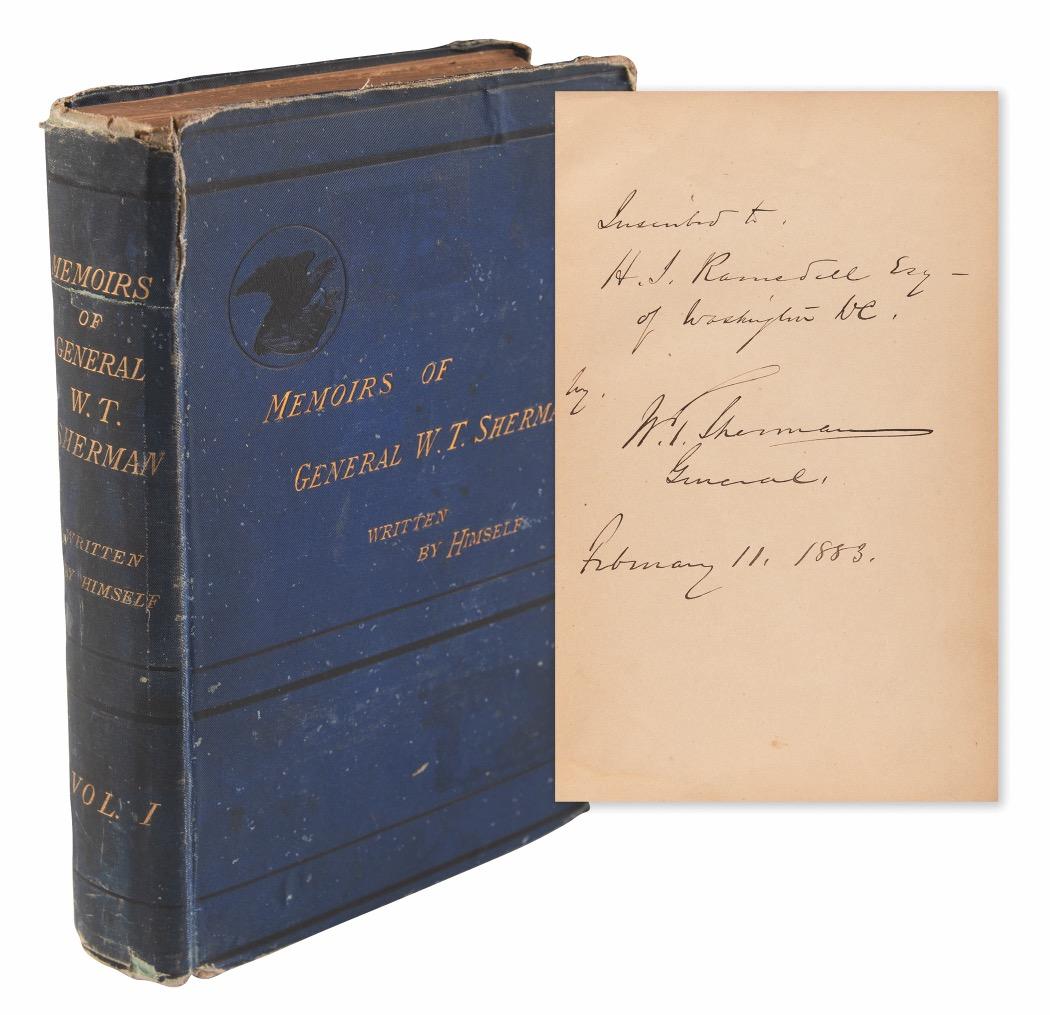 MEMOIRS
OF
GENERAL
W. T.
SHERMAN
WRITTEN
BY HIMSELF
VOL. I
MEMOIRS OF
GENERAL W. T. SHERMA
WRITTEN
BY HIMSELF
Inscribed to.
H. J. Ramsdell Esq —
of Washington DC.
by.
W. T. Sherman
General.
February 11. 1883.